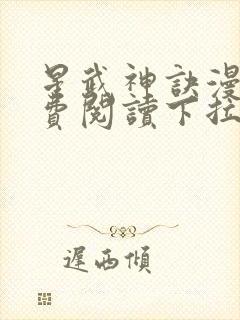 星武神訣漫
費閱讀下拉
遲西傾